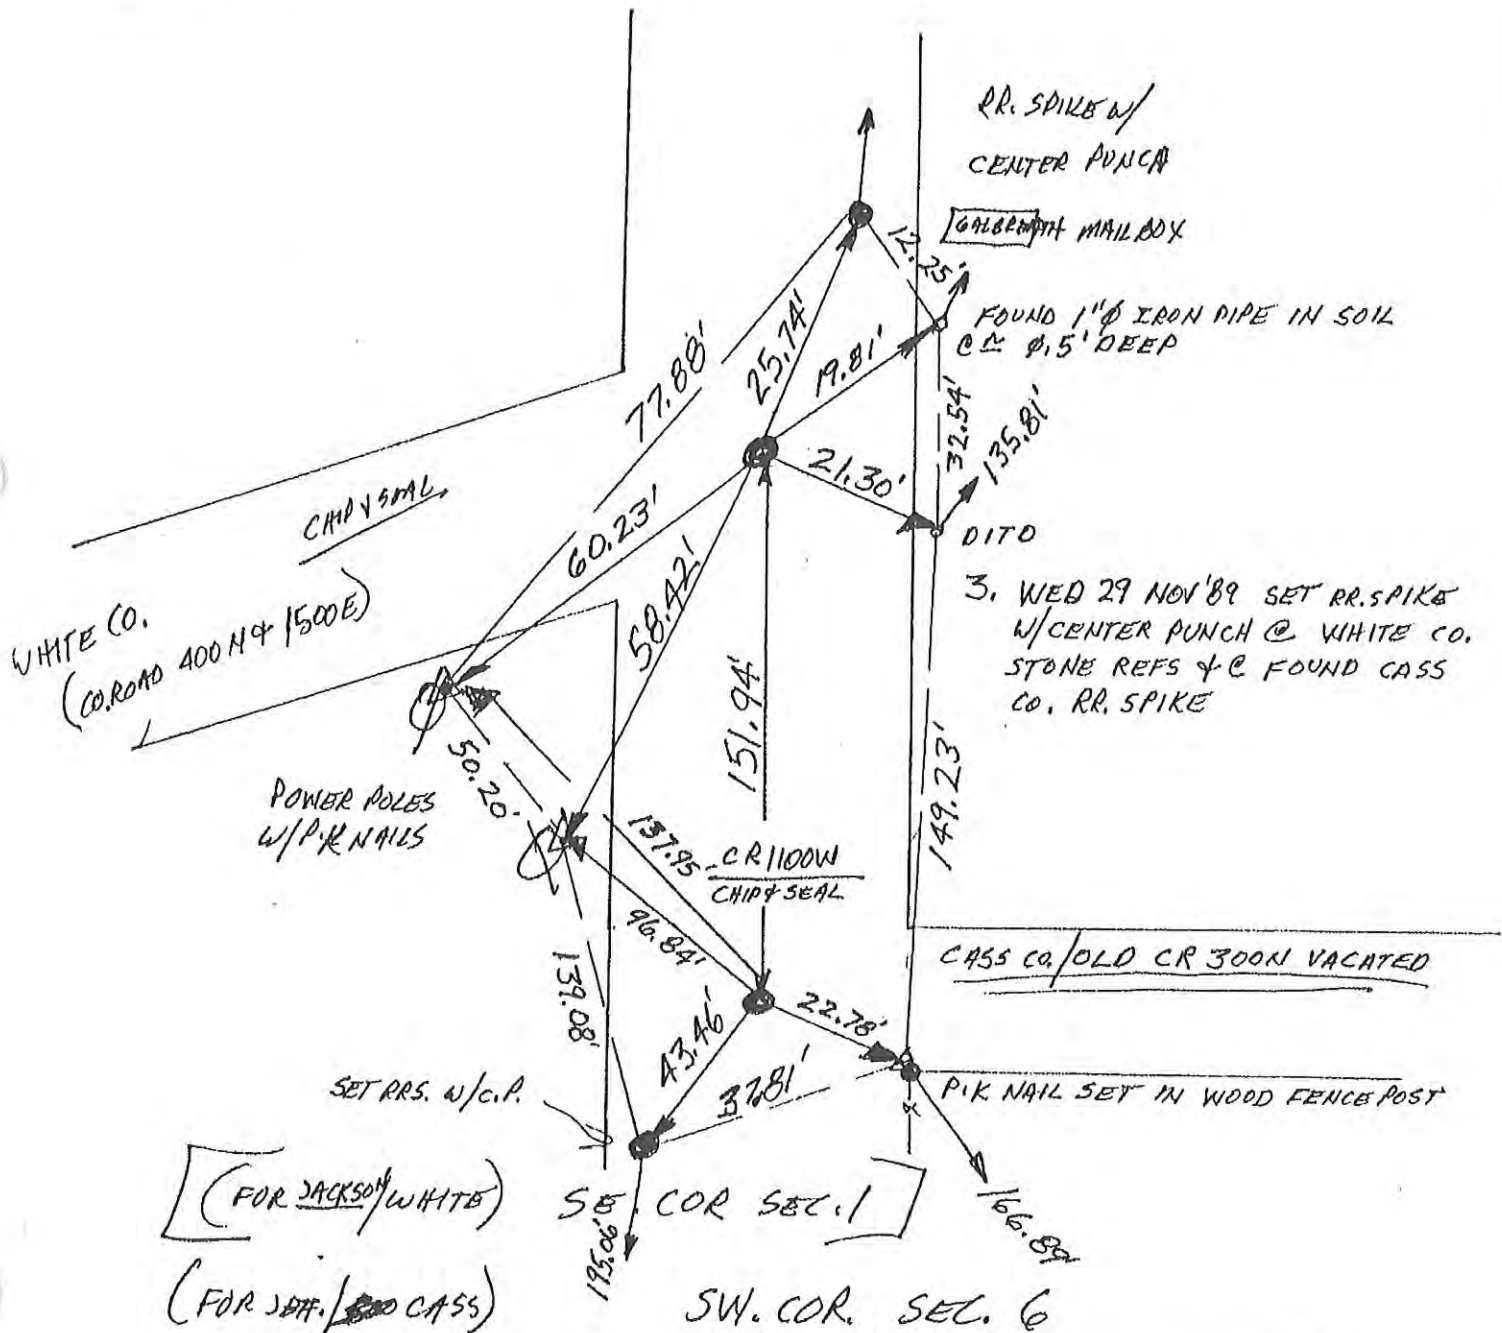 RR. SPIKE W/
CENTER PUNCH
GALBREATH MAILBOX
12.25'
FOUND 1"Ø IRON PIPE IN SOIL
@ ≃ Ø.5' DEEP
77.88'
25.74'
19.81'
32.54'
135.81'
21.30'
DITO
CHIP & SEAL
60.23'
58.42'
3. WED 29 NOV '89 SET RR. SPIKE
W/CENTER PUNCH @ WHITE CO.
STONE REFS & @ FOUND CASS
CO. RR. SPIKE
WHITE CO.
(CO. ROAD 400 N & 1500 E)
50.20'
151.94'
149.23'
POWER POLES
W/P.K NAILS
137.95
CR 1100W
CHIP & SEAL
96.84'
CASS CO./OLD CR 300N VACATED
139.08'
22.78'
43.46'
37.81'
SET RRS. W/C.P.
P.K NAIL SET IN WOOD FENCE POST
[(FOR JACKSON/WHITE) SE. COR SEC. 1]
166.89
195.06'
(FOR JEFF./ CASS) SW. COR. SEC. 6